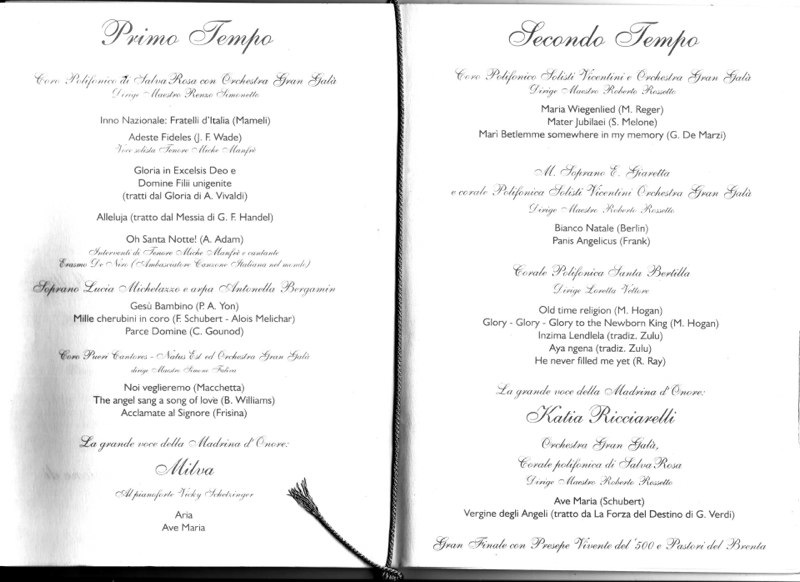 Primo Tempo
Coro Polifonico di Salva Rosa con Orchestra Gran Galà
Dirige Maestro Renzo Simonetto
Inno Nazionale: Fratelli d'Italia (Mameli)
Adeste Fideles (J. F. Wade)
Voce solista Tenore Miche Manfrè
Gloria in Excelsis Deo e
Domine Filii unigenite
(tratti dal Gloria di A. Vivaldi)
Alleluja (tratto dal Messia di G. F. Handel)
Oh Santa Notte! (A. Adam)
Interventi di Tenore Miche Manfrè e cantante
Erasmo De Niro (Ambasciatore Canzone Italiana nel mondo)
Soprano Lucia Michelazzo e arpa Antonella Bergamin
Gesù Bambino (P. A. Yon)
Mille cherubini in coro (F. Schubert - Alois Melichar)
Parce Domine (C. Gounod)
Coro Pueri Cantores - Natus Est ed Orchestra Gran Galà
dirige Maestro Simone
Noi veglieremo (Macchetta)
The angel sang a song of love (B. Williams)
Acclamate al Signore (Frisina)
La grande voce della Madrina d'Onore:
Milva
Al pianoforte Vicky Schetzinger
Aria
Ave Maria
Secondo Tempo
Coro Polifonico Solisti Vicentini e Orchestra Gran Galà
Dirige Maestro Roberto Rossetto
Maria Wiegenlied (M. Reger)
Mater Jubilaei (S. Melone)
Mari Betlemme somewhere in my memory (G. De Marzi)
M. Soprano E. Giaretta
e corale Polifonica Solisti Vicentini Orchestra Gran Galà
Dirige Maestro Roberto Rossetto
Bianco Natale (Berlin)
Panis Angelicus (Frank)
Corale Polifonica Santa Bertilla
Dirige Loretta Vettore
Old time religion (M. Hogan)
Glory - Glory - Glory to the Newborn King (M. Hogan)
Inzima Lendlela (tradiz. Zulu)
Aya ngena (tradiz. Zulu)
He never filled me yet (R. Ray)
La grande voce della Madrina d'Onore:
Katia Ricciarelli
Orchestra Gran Galà,
Corale polifonica di Salva Rosa
Dirige Maestro Roberto Rossetto
Ave Maria (Schubert)
Vergine degli Angeli (tratto da La Forza del Destino di G. Verdi)
Gran Finale con Presepe Vivente del '500 e Pastori del Brenta